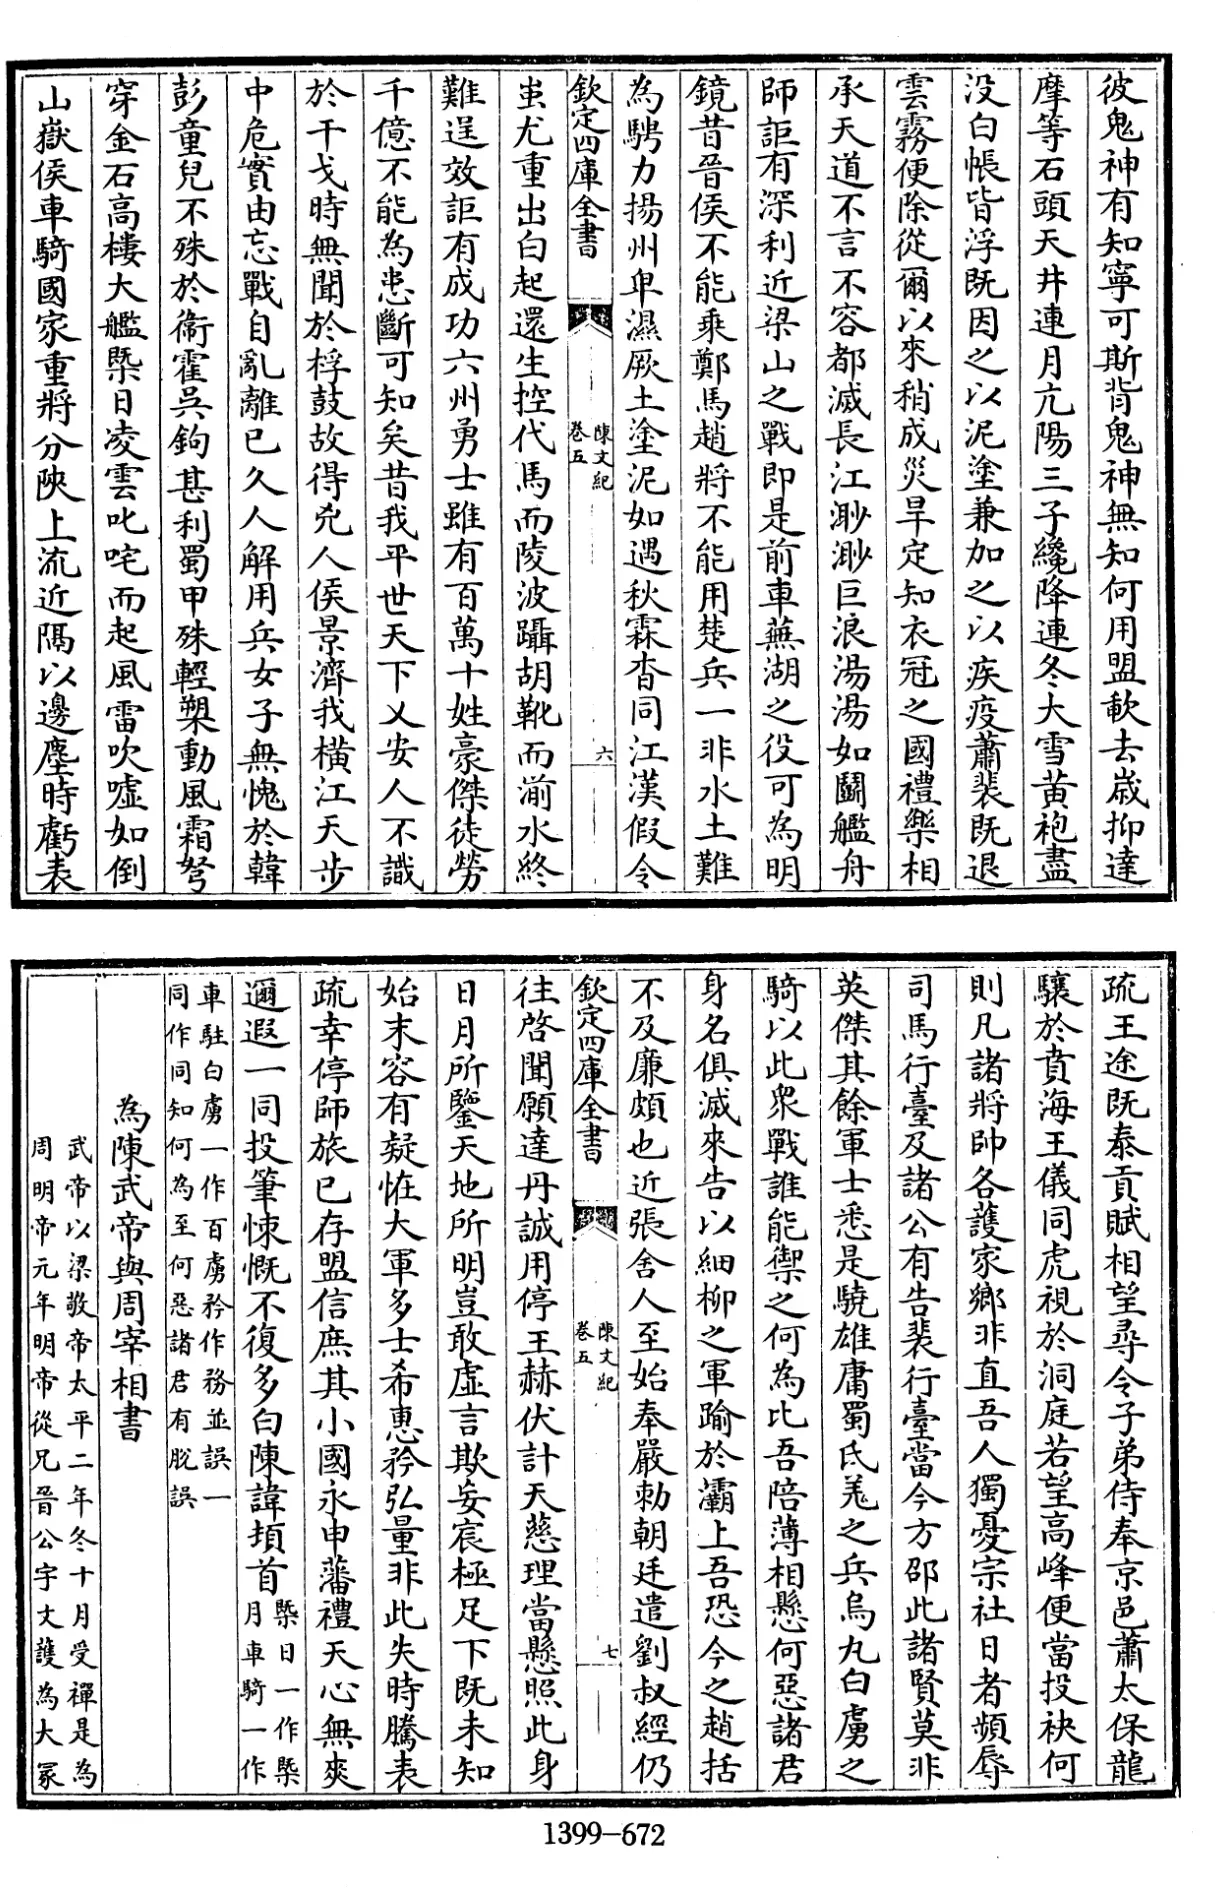 彼鬼神有知寧可斯背鬼神無知何用盟歃去歲抑達
摩等石頭天井連月亢陽三子纔降連冬大雪黃袍盡
沒白帳皆浮既因之以泥塗兼加之以疾疫蕭裴既退
雲霧便除從爾以來稍成災旱定知衣冠之國禮樂相
承天道不言不容都滅長江渺渺巨浪湯湯如鬬艦舟
師詎有深利近梁山之戰即是前車蕪湖之役可為明
鏡昔晉侯不能乘鄭馬趙將不能用楚兵一非水土難
為騁力揚州卑濕厥土塗泥如遇秋霖杳同江漢假令
欽定四庫全書
陳文紀
卷五
六
蚩尤重出白起還生控代馬而陵波躡胡靴而湔水終
難逞效詎有成功六州勇士雖有百萬十姓豪傑徒勞
千億不能為患斷可知矣昔我平世天下乂安人不識
於干戈時無聞於桴鼓故得兇人侯景濟我橫江天步
中危實由忘戰自亂離已久人解用兵女子無愧於韓
彭童兒不殊於衞霍吳鉤甚利蜀甲殊輕槊動風霜弩
穿金石高樓大艦槩日凌雲叱咤而起風雷吹噓如倒
山嶽侯車騎國家重將分陝上流近隔以邊塵時虧表
疏王途既泰貢賦相望尋令子弟侍奉京邑蕭太保龍
驤於賁海王儀同虎視於洞庭若望高峰便當投袂何
則凡諸將帥各護家鄉非直吾人獨憂宗社日者頻辱
司馬行臺及諸公有告裴行臺當今方邵此諸賢莫非
英傑其餘軍士悉是驍雄庸蜀氐羌之兵烏丸白虜之
騎以此衆戰誰能禦之何為比吾陪薄相懸何惡諸君
身名俱滅來告以細柳之軍踰於灞上吾恐今之趙括
不及廉頗也近張舍人至始奉嚴勅朝廷遣劉叔經仍
欽定四庫全書
陳文紀
卷五
七
往啓聞願達丹誠用停王赫伏計天慈理當懸照此身
日月所鑒天地所明豈敢虛言欺妄宸極足下既未知
始末容有疑怪大軍多士希惠矜弘量非此失時騰表
疏幸停師旅已存盟信庶其小國永申藩禮天心無爽
邇遐一同投筆悚慨不復多白陳諱頓首槩日一作槩
月車騎一作
車駐白虜一作百虜矜作務並誤一
同作同知何為至何惡諸君有脫誤
為陳武帝與周宰相書
武帝以梁敬帝太平二年冬十月受禪是為
周明帝元年明帝從兄晉公宇文護為大冢
1399-672